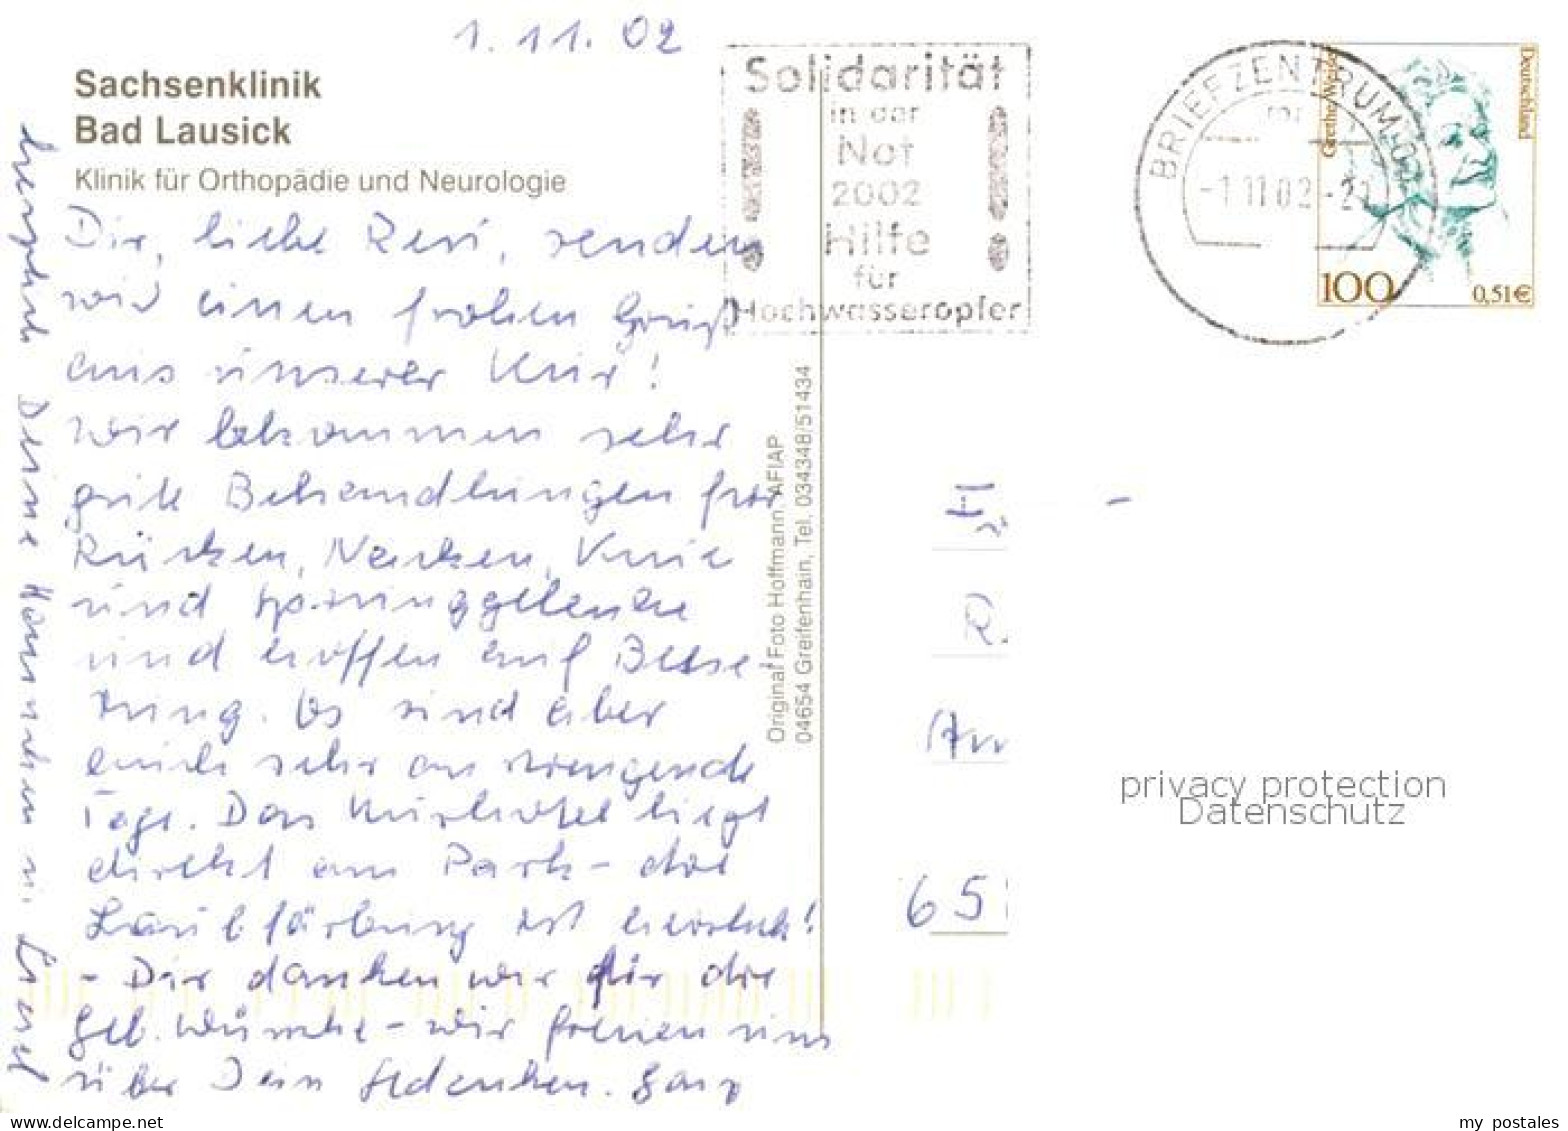 1.11.02
Sachsenklinik
Bad Lausick
Klinik für Orthopädie und Neurologie
Dir, liebe Resi, senden
wir einen frohen Gruß
aus unserer Kur!
Wir bekommen sehr
gute Behandlungen für
Rücken, Nacken, Knie
und Sprunggelenke
und hoffen auf Besse
rung. Es sind aber
auch sehr anstrengende
Tage. Das Kurhotel liegt
direkt am Park - die
Laubfärbung ist herrlich!
- Dir danken wir für die
Geb. wünsche - wir freuen uns
über Dein Gedenken. Ganz
herzlich Deine Hannchen u.
Solidarität
in der
Not
2002
Hilfe
für
Hochwasseropfer
BRIEFZENTRUM
-1.11.02-2
Grethe Weiser
Deutschland
100
0,51€
Original Foto Hoffmann, AFIAP
04654 Greifenhain, Tel. 034348/51434
R.
An
65
privacy protection
Datenschutz
www.delcampe.net
my_postales